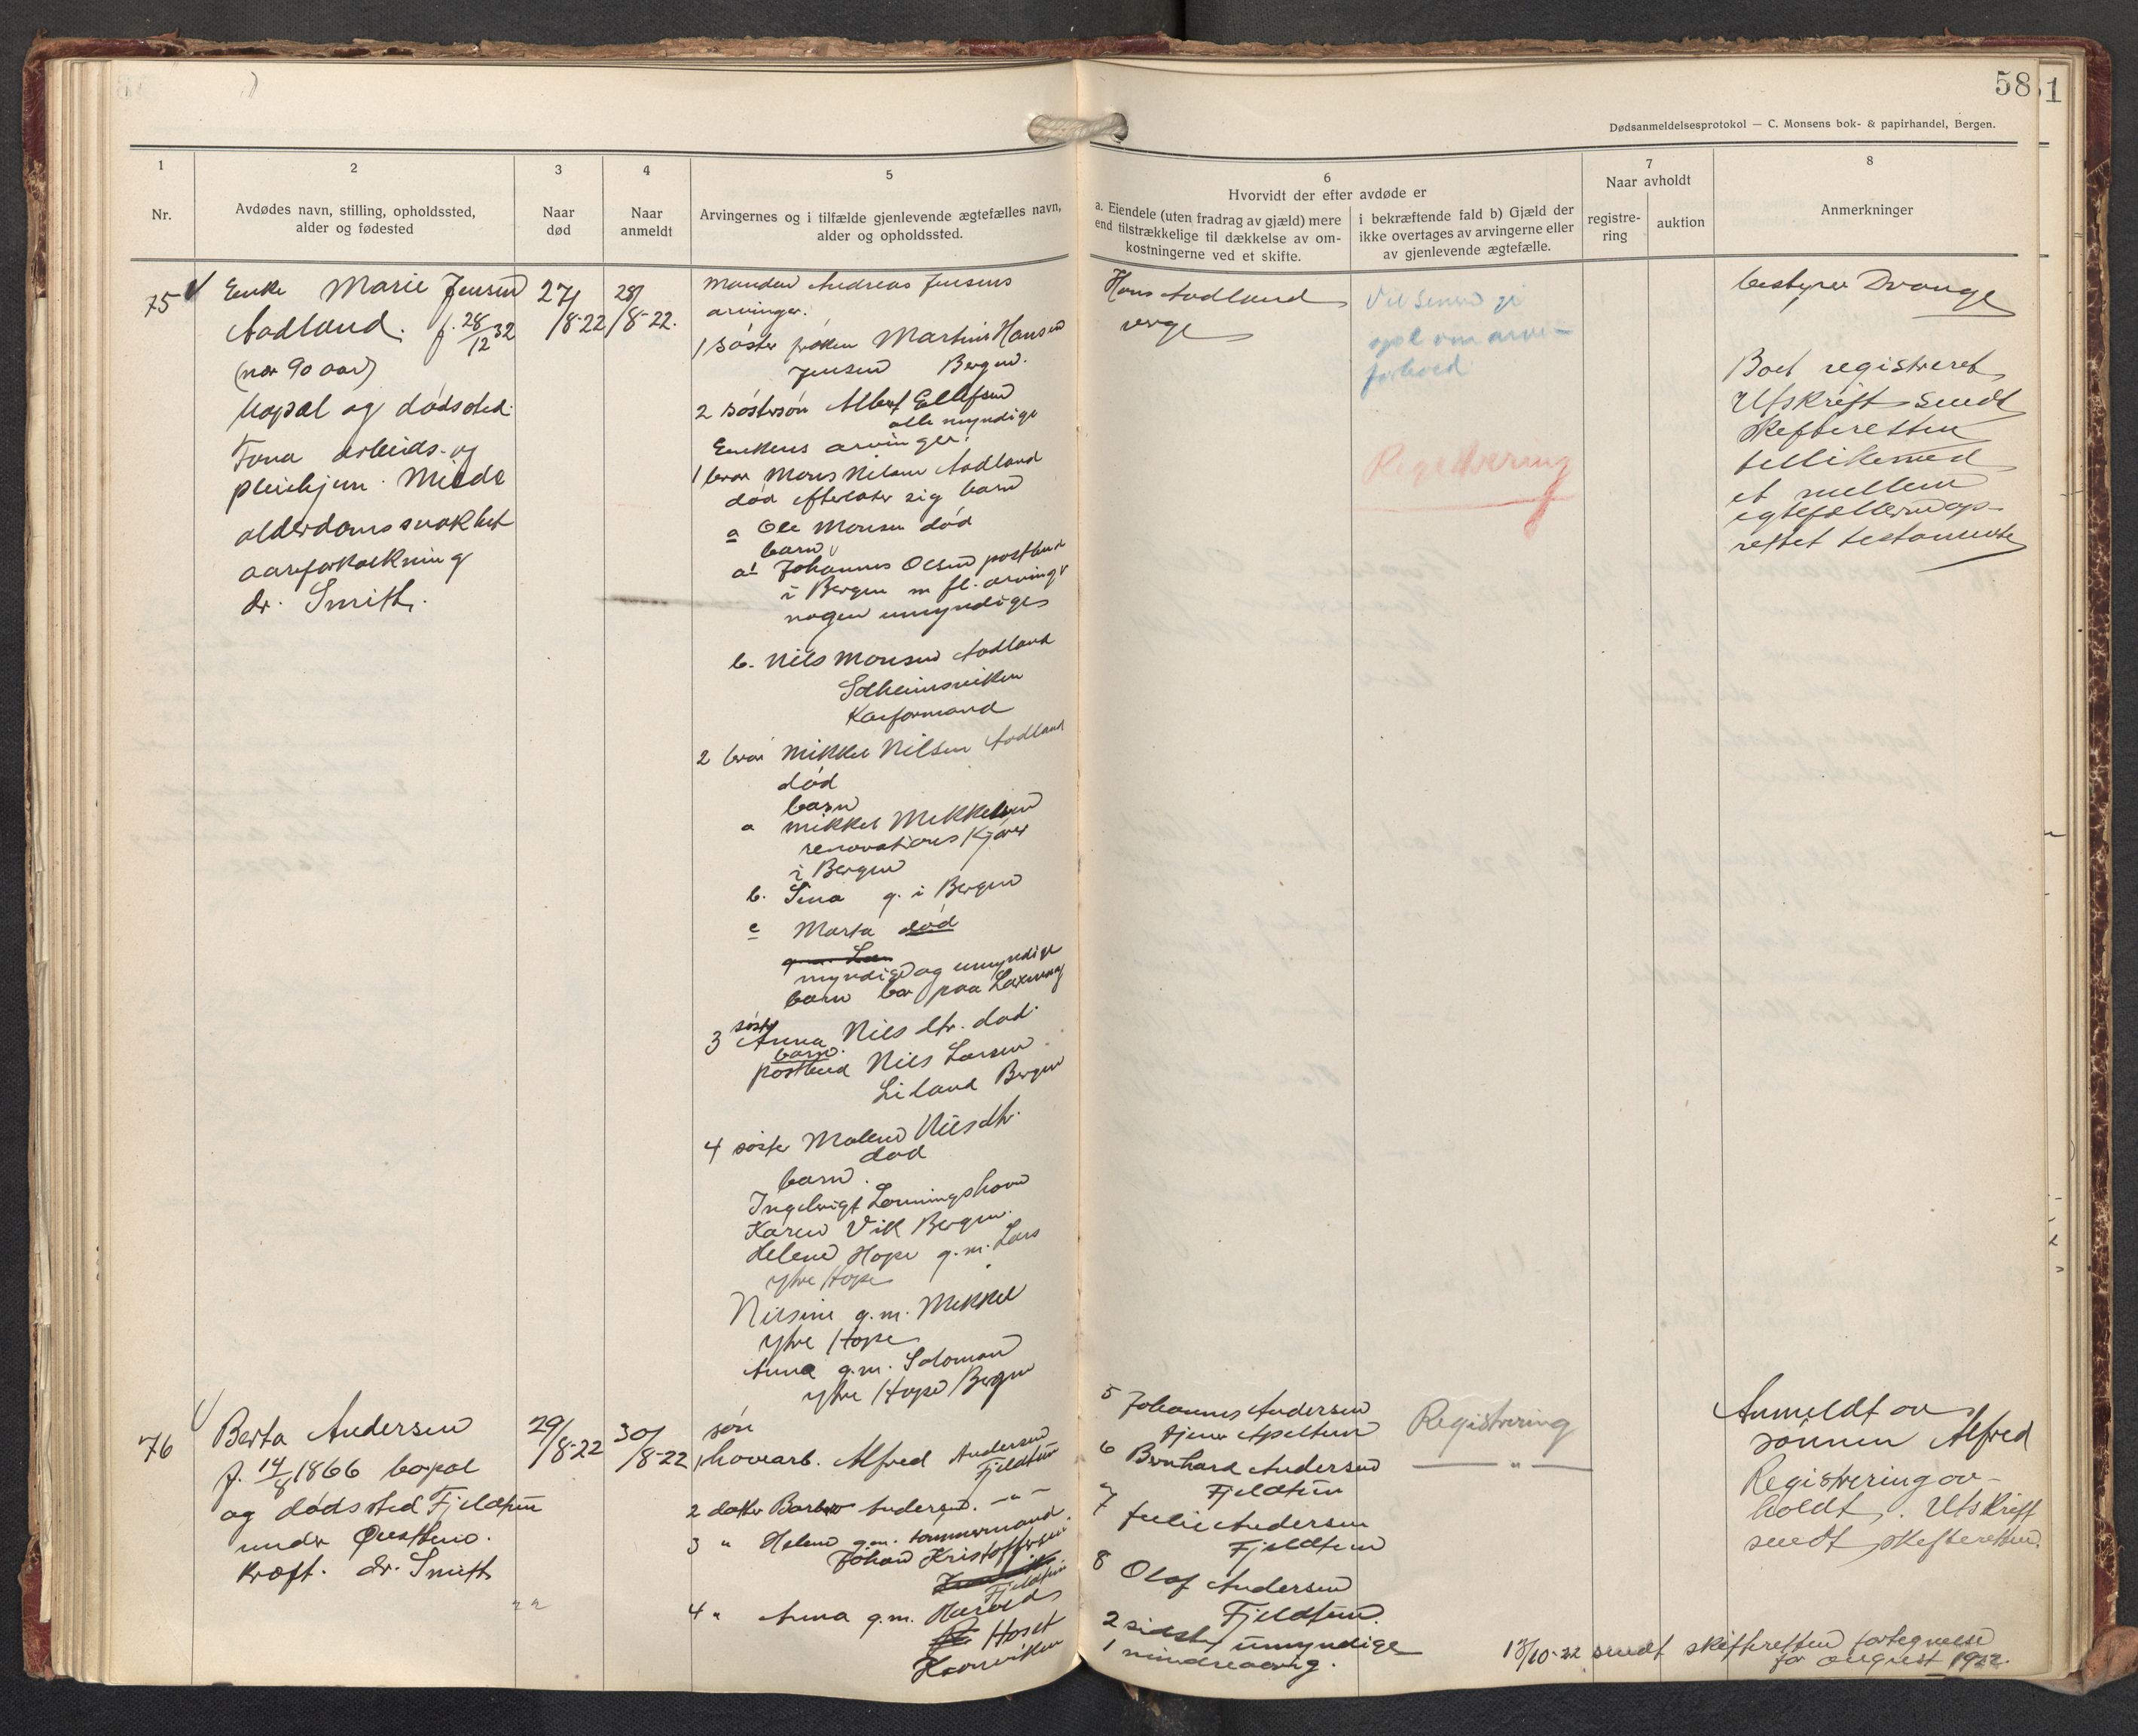 58
1
Dødsanmeldelsesprotokol — C. Monsens bok- & papirhandel, Bergen.
1
Nr.
2
Avdødes navn, stilling, opholdssted,
alder og fødested
3
Naar
død
4
Naar
anmeldt
5
Arvingernes og i tilfælde gjenlevende ægtefælles navn,
alder og opholdssted.
6
Hvorvidt der efter avdøde er
a. Eiendele (uten fradrag av gjæld) mere
end tilstrækkelige til dækkelse av om-
kostningerne ved et skifte.
i bekræftende fald b) Gjæld der
ikke overtages av arvingerne eller
av gjenlevende ægtefælle.
7
Naar avholdt
registre-
ring
auktion
8
Anmerkninger
75
Enke Marie Jensen
Aadland. f. 28/12 32
(nær 90 aar)
bopæl og dødssted:
Fana arbeids- og
pleiehjem. Milde
alderdomssvakhet
aareforkalkning
dr. Smith.
27/8-22
28/8-22.
Manden Andreas Jensens
arvinger:
1 søster frøken Martine Hansen
Jensen Bergen.
2 søstersøn Albert Ellefsen
alle myndige
Enkens arvinger:
1 bror Mons Nilsen Aadland
død efterlater sig barn
a Ole Monsen død
barn
a1 Johannes Olsen postbud
i Bergen m fl. arvinger
nogen umyndige
b. Nils Monsen Aadland
Solheimsviken
Kaiformand
2 bror Mikkel Nilsen Aadland
død
barn
a Mikkel Mikkelsen
renovationskjører
i Bergen
b. Sina g. i Bergen
c Marta død
myndige og umyndige
barn bor paa Laxevaag
3 søster Anna Nilsdtr. død
barn.
postbud Nils Larsen
Liland Bergen
4 søster Malene Nilsdtr.
død
barn.
Ingebrigt Lønningshavn
Karen Vik Bergen.
Helene Hope g.m. Lars
ytre Hope
Nilsine g.m. Mikkel
ytre Hope
Anna g.m. Salomon
ytre Hope Bergen
Hans Aadland
verge
Vil senere gi
opl om arve-
forhold
Registrering
bestyrer Drange
Boet registreret
Utskrift sendt
skifteretten
tillikemed
et mellem
egtefællerne op-
rettet testamente
76
Berta Andersen
f. 14/8 1866 bopæl
og dødssted Fjeldtun
under Øvsttun.
kræft. dr. Smith
29/8-22
30/8-22
søn
1 hovearb. Alfred Andersen
Fjeldtun
2 datter Andersen. — " —
3 " Helene g.m. tømmermand
Johan Kristoffersen
Fjeldtun
4 " Anna g.m. Harald
Hoset
5 Johannes Andersen
tjener Apeltun
6 Bernhard Andersen
Fjeldtun
7 Julie Andersen
Fjeldtun
8 Olaf Andersen
Fjeldtun.
2 sidste umyndige
1 mindreaarig.
Registrering
— " —
Anmeldt av
sønnen Alfred
Registrering av-
holdt. Utskrift
sendt skifteretten.
13/10-22 sendt skifteretten fortegnelse
for august 1922.